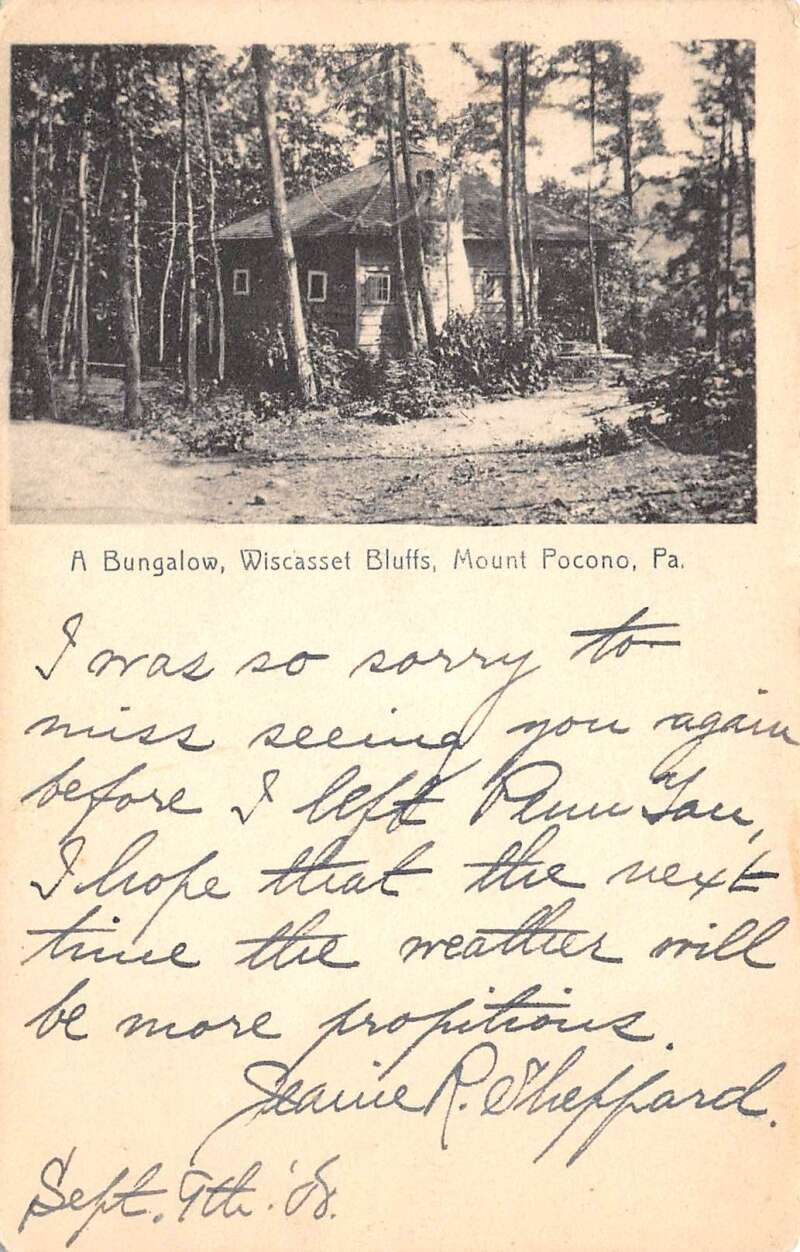 A Bungalow, Wiscasset Bluffs, Mount Pocono, Pa.
I was so sorry to
miss seeing you again
before I left Penn Yan,
I hope that the next
time the weather will
be more propitious.
Jeanie R. Sheppard.
Sept. 9th. '08.